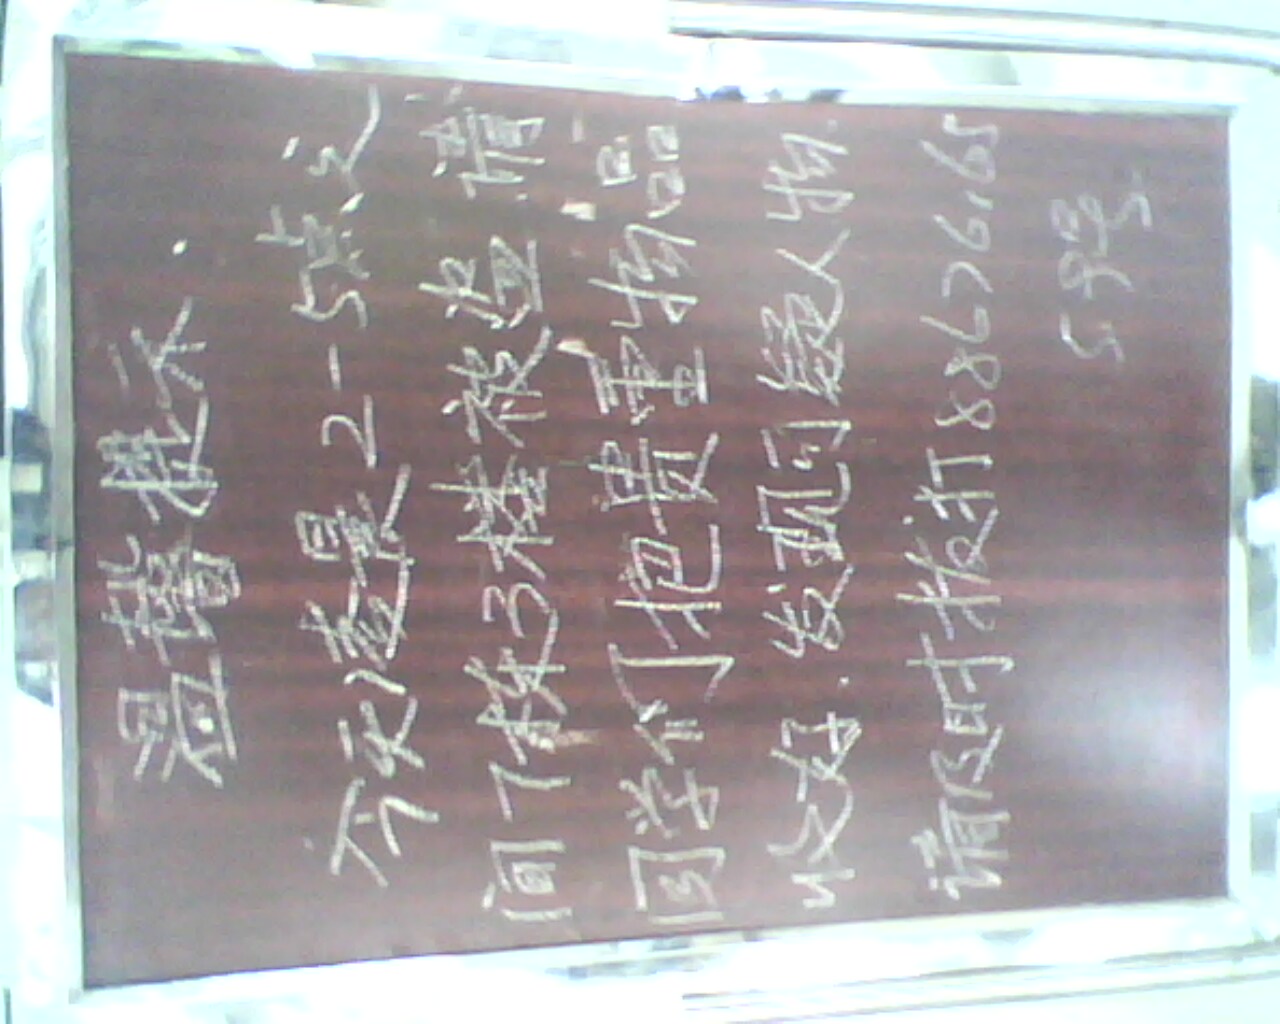 温馨提示
今天凌晨2-5点之
间7栋3楼被盗请
同学们把贵重物品
收好.发现可疑人物.
请及时报打88676165
5月8号